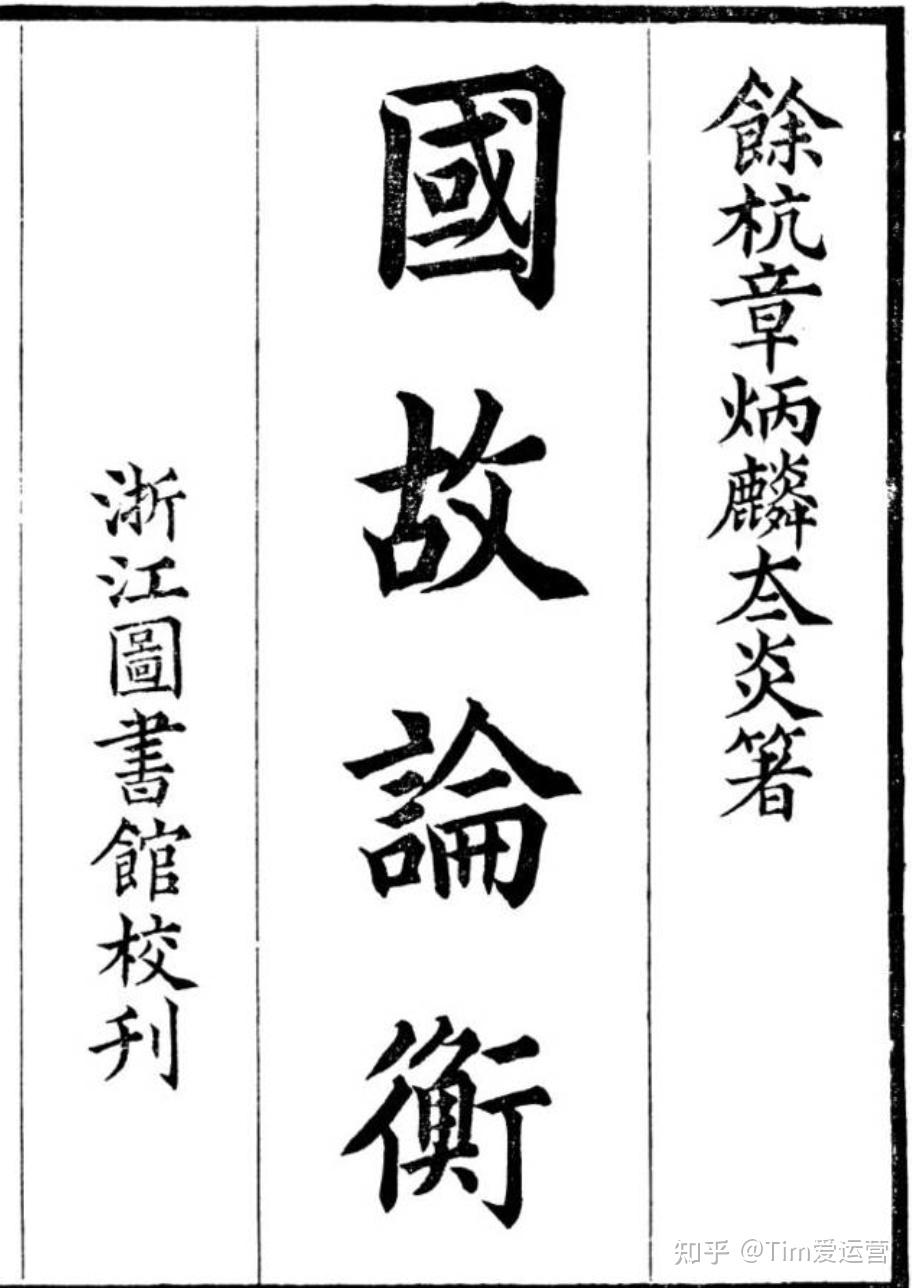 餘杭章炳麟夳炎箸
國故論衡
浙江圖書館校刊
知乎 @Tim爱运营